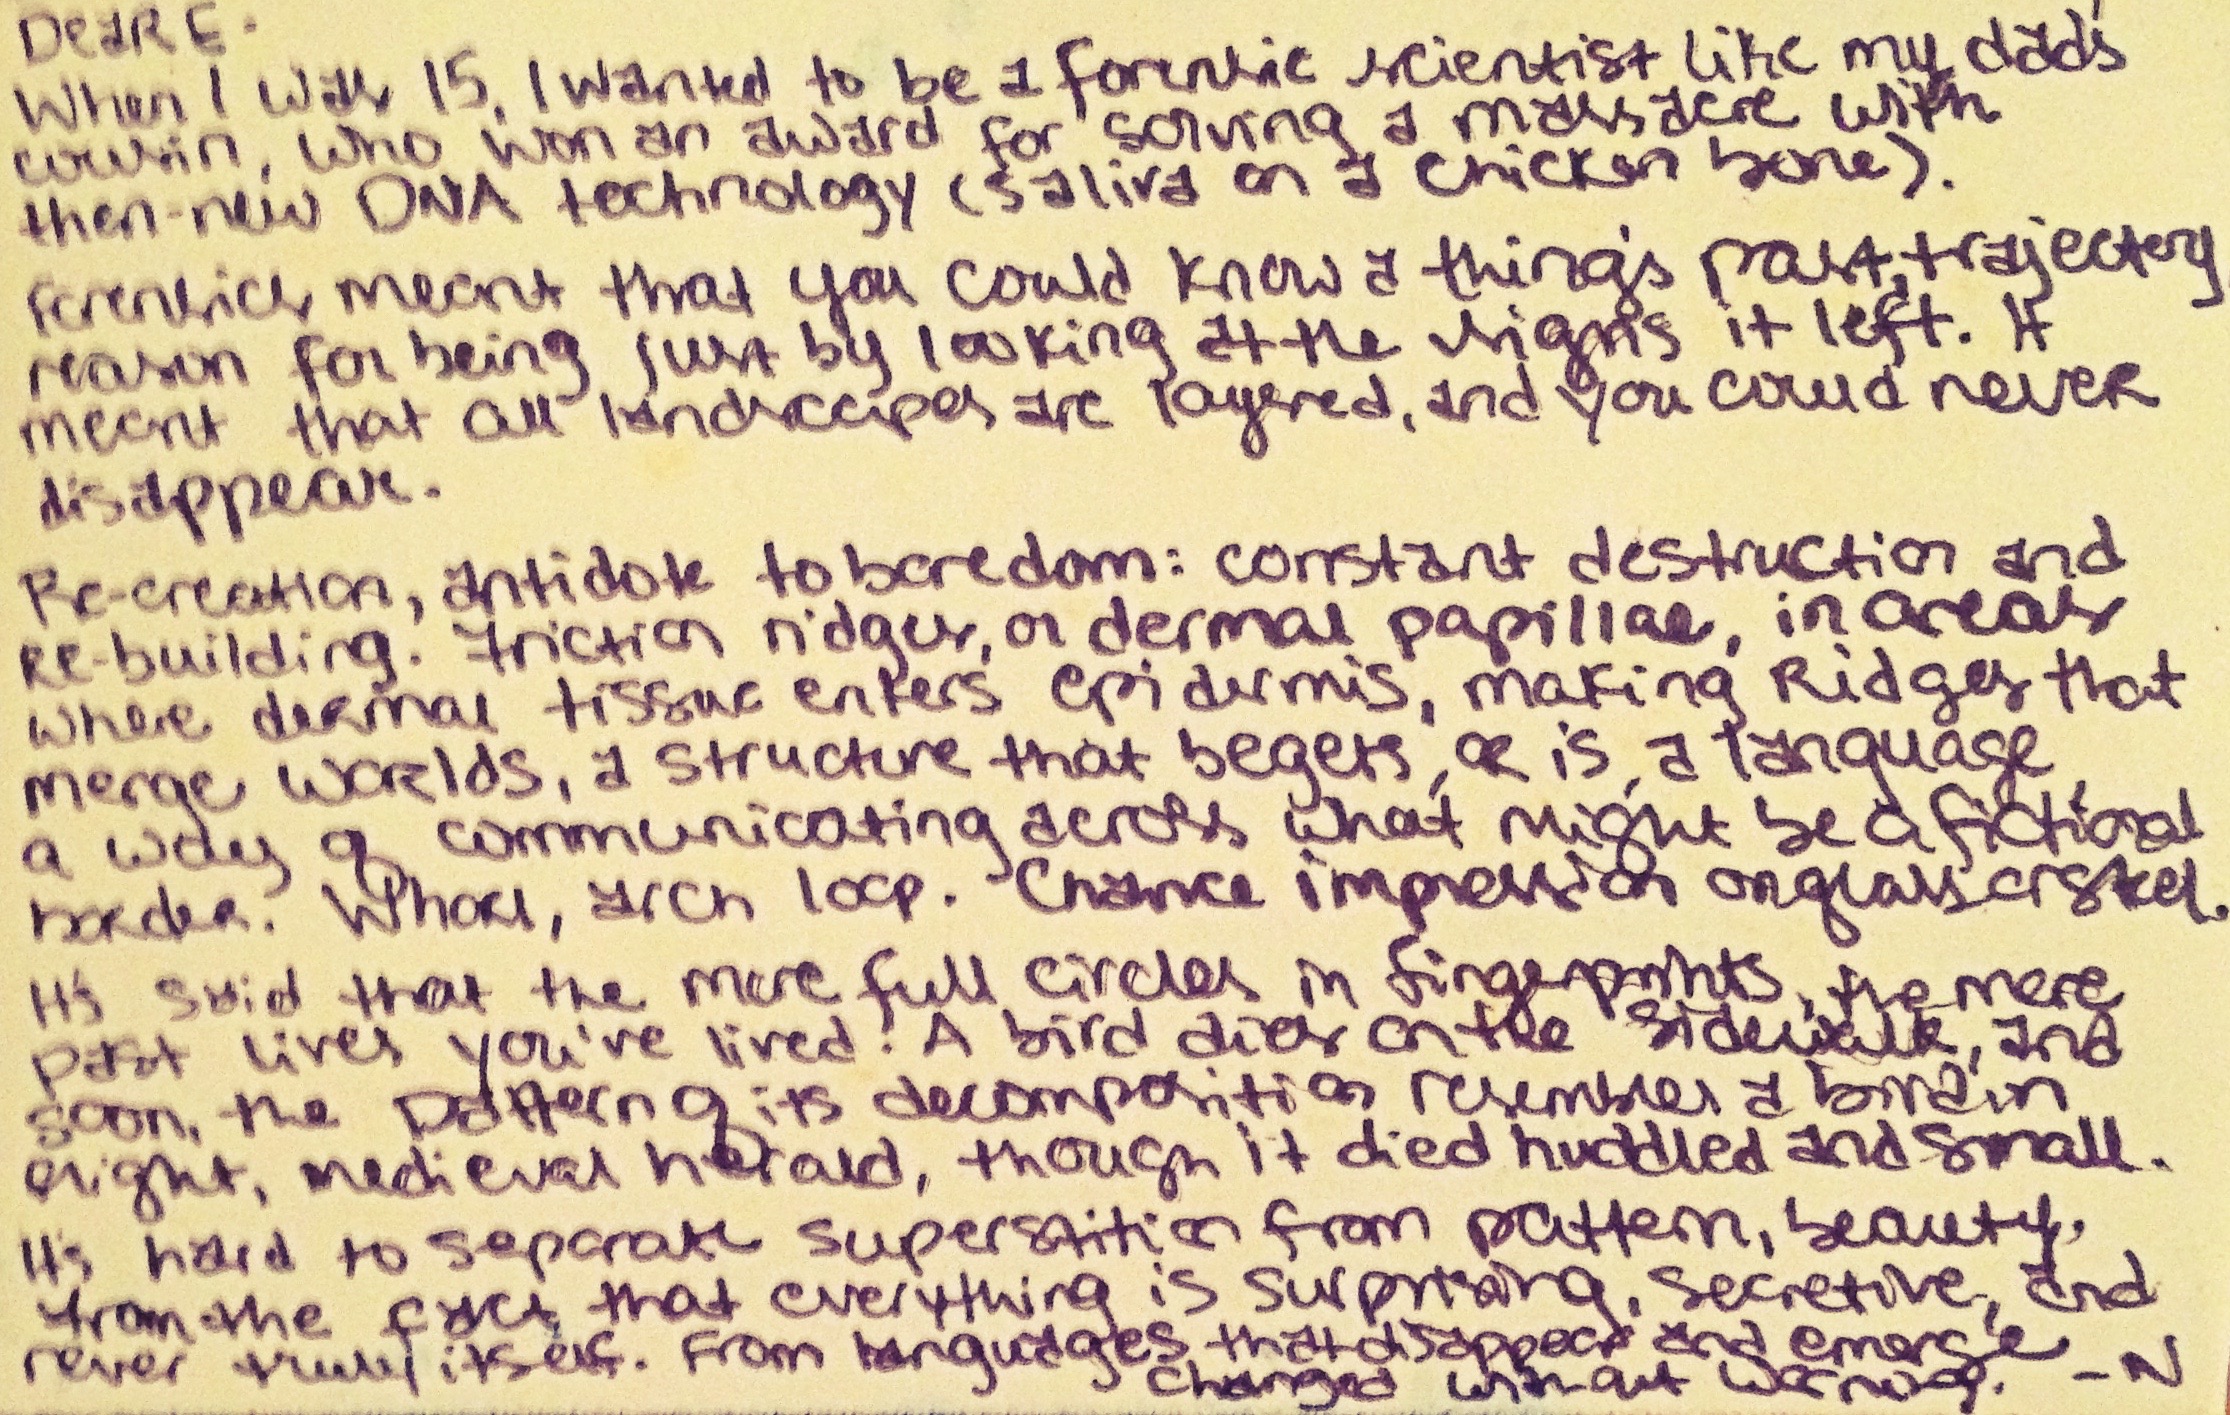 Dear E.
When I was 15, I wanted to be a forensic scientist like my dad's
cousin, who won an award for solving a massacre with
then-new DNA technology (saliva on a chicken bone).
Forensics meant that you could know a thing's past, trajectory
reason for being just by looking at the signs it left. It
meant that all landscapes are layered, and you could never
disappear.
Re-creation, antidote to boredom: constant destruction and
re-building. Friction ridges, or dermal papillae, in areas
where dermal tissue enters epidermis, making ridges that
merge worlds, a structure that begets, or is, a language,
a way of communicating across what might be a fictional
border. Whorl, arch loop. Chance impression on glass or skel.
It's said that the more full circles in fingerprints, the more
past lives you've lived. A bird dies on the sidewalk, and
soon, the pattern of its decomposition resembles a bird in
flight, medieval herald, though it died huddled and small.
It's hard to separate superstition from pattern, beauty,
from the fact that everything is surprising, secretive, and
never truly itself. From languages that disappear and emerge
changed without warning. -N